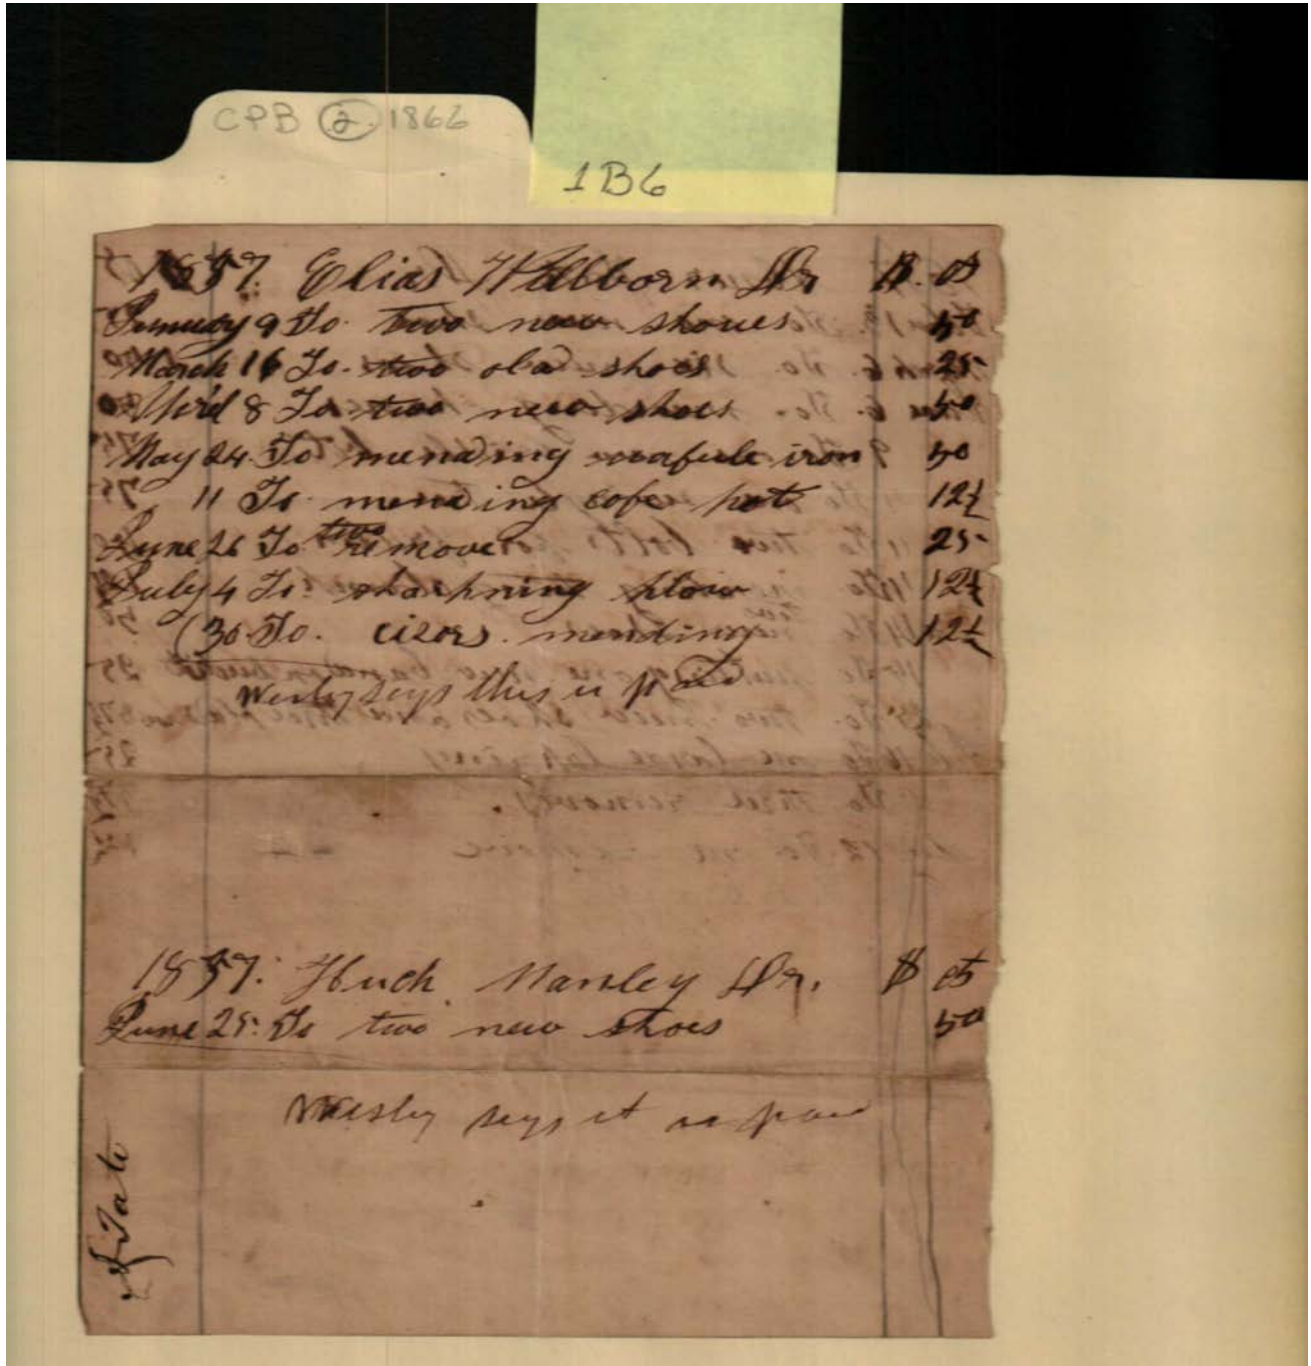 CPB 2 1866
1B6
1857. Elias Wellborn Dr $. ct
January 9 To. two new shoues 50
March 16 To. two old shoes 25
Aprel 8 To two new shoes 50
May 24 To mending wafule iron 50
11 To mending cofe pot 12½
June 26 To two remove 25
July 4 To sharpning plow 12½
30 To. cizors. mending 12½
Wesley says this is paid
1857. Hugh Manley Dr. $ ct
June 25. To two new shoes 50
Wesley says it is paid
Tate